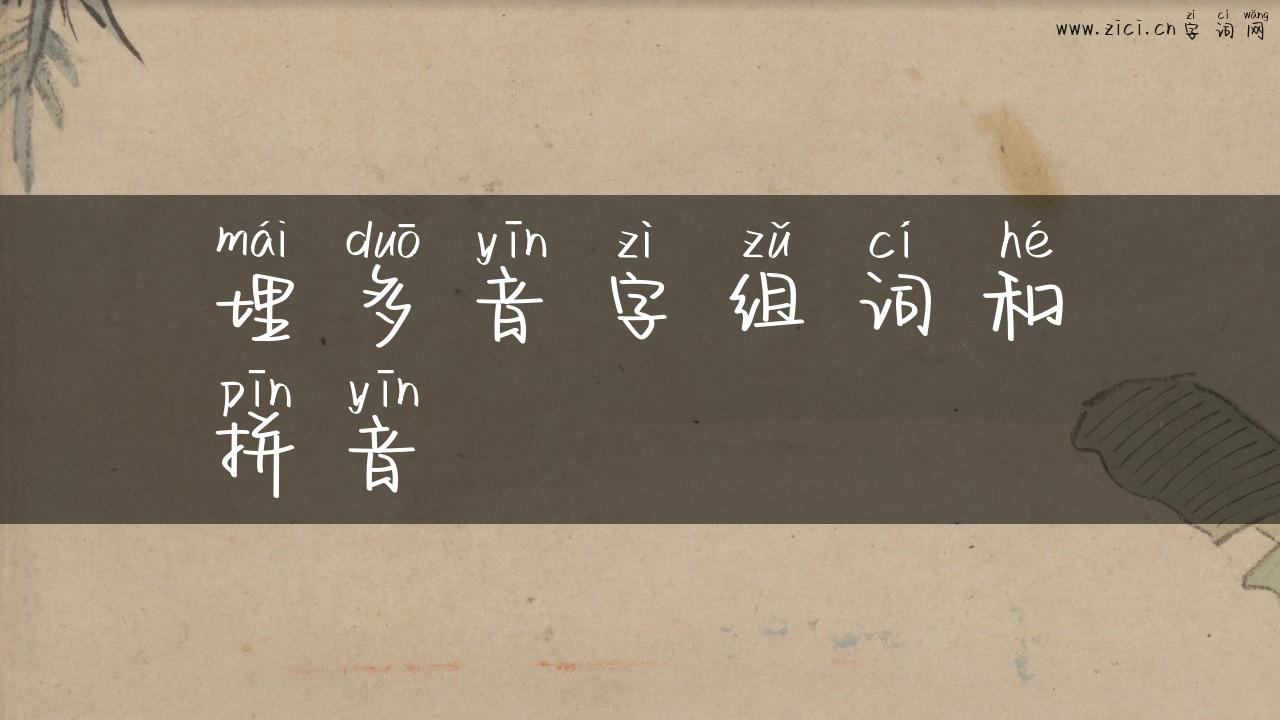 zì cí wǎng
www.zici.cn 字词网
mái duō yīn zì zǔ cí hé
埋多音字组词和
pīn yīn
拼音